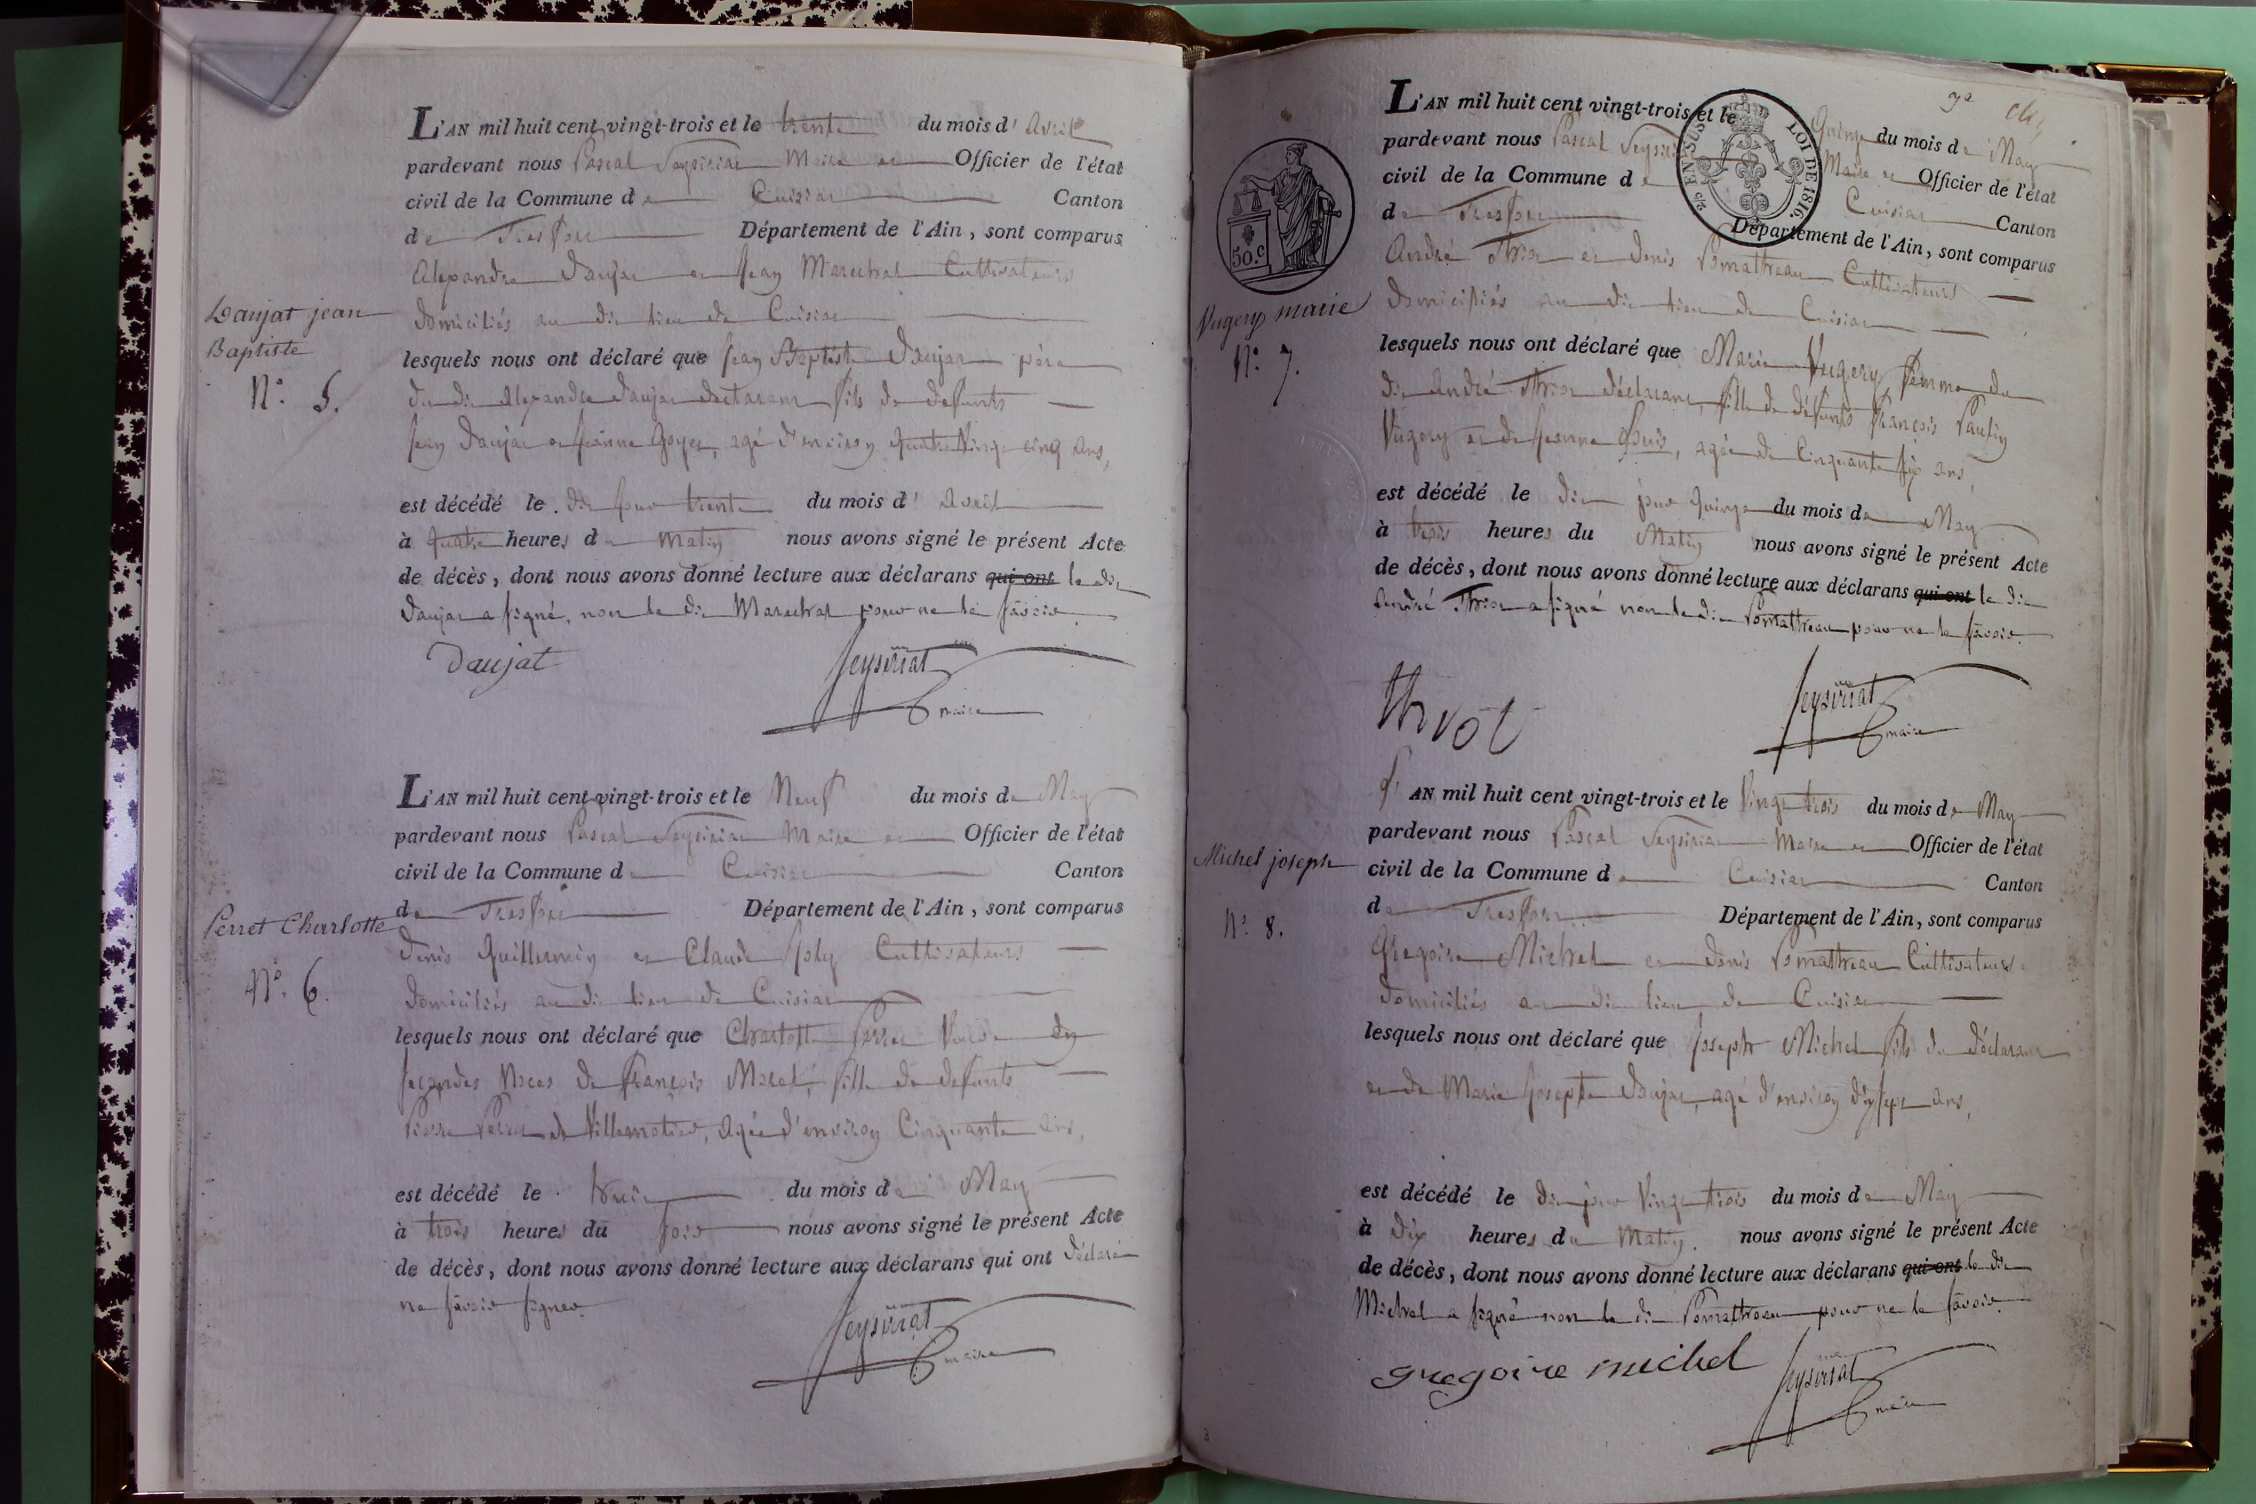 L'AN mil huit cent vingt-trois et le trente du mois d' avril
pardevant nous Pascal Seysiriat Maire et Officier de l'état
civil de la Commune de Cuisiat Canton
de Treffort Département de l'Ain, sont comparus
Alexandre Daujat et Jean Marechal Cultivateurs
domiciliés au dit lieu de Cuisiat
Daujat jean
Baptiste
lesquels nous ont déclaré que Jean Baptiste Daujat père
N.° 5.
du dit Alexandre Daujat déclarant fils de defunts
Jean Daujat et Jeanne Goyet, agé d'environ quatre Vingt cinq ans,
est décédé le dit jour trente du mois d' avril
à quatre heures du matin nous avons signé le présent Acte
de décès, dont nous avons donné lecture aux déclarans qui ont le dit
Daujat a signé, non le dit Marechal pour ne le sâvoir.
Daujat Seysiriat
maire
L'AN mil huit cent vingt-trois et le Neuf du mois de May
pardevant nous Pascal Seysiriat Maire et Officier de l'état
civil de la Commune de Cuisiat Canton
de Treffort Département de l'Ain, sont comparus
Perret Charlotte
Denis Guillermin et Claude Joly Cultivateurs
N.° 6.
domiciliés au dit lieu de Cuisiat
lesquels nous ont déclaré que Charlotte Perret Veuve en
secondes Noces de François Morel, fille de defunts
Pierre Perret de Villemotier, agée d'environ Cinquante ans,
est décédé le huit du mois de May
à trois heures du soir nous avons signé le présent Acte
de décès, dont nous avons donné lecture aux déclarans qui ont déclaré
ne sâvoir signer.
Seysiriat
maire
L'AN mil huit cent vingt-trois et le Quinze du mois de May
pardevant nous Pascal Seysiriat Maire et Officier de l'état
civil de la Commune de Cuisiat Canton
de Treffort Département de l'Ain, sont comparus
EN SUS LOI DE 1816.
50.c
André Thivot et Denis Pomathreau Cultivateurs
domiciliés au dit lieu de Cuisiat
Vugery marie
lesquels nous ont déclaré que Marie Vugery femme du
N.° 7.
dit André Thivot déclarant, fille de défunts François Paulin
Vugery et de Jeanne, agée de Cinquante six ans,
est décédé le dit jour Quinze du mois de May
à trois heures du Matin nous avons signé le présent Acte
de décès, dont nous avons donné lecture aux déclarans qui ont le dit
André Thivot a signé non le dit Pomathreau pour ne le sâvoir.
thivot Seysiriat
maire
L'AN mil huit cent vingt-trois et le Vingt trois du mois de May
pardevant nous Pascal Seysiriat Maire et Officier de l'état
Michel joseph
civil de la Commune de Cuisiat Canton
N.° 8.
de Treffort Département de l'Ain, sont comparus
Gregoire Michel et Denis Pomathreau Cultivateurs
domiciliés au dit lieu de Cuisiat
lesquels nous ont déclaré que Joseph Michel fils du déclarant
et de Marie Josepte Daujat, agé d'environ dix sept ans,
est décédé le dit jour Vingt trois du mois de May
à dix heures du Matin. nous avons signé le présent Acte
de décès, dont nous avons donné lecture aux déclarans qui ont le dit
Michel a signé non le dit Pomathreau pour ne le sâvoir.
gregoire michel Seysiriat
maire